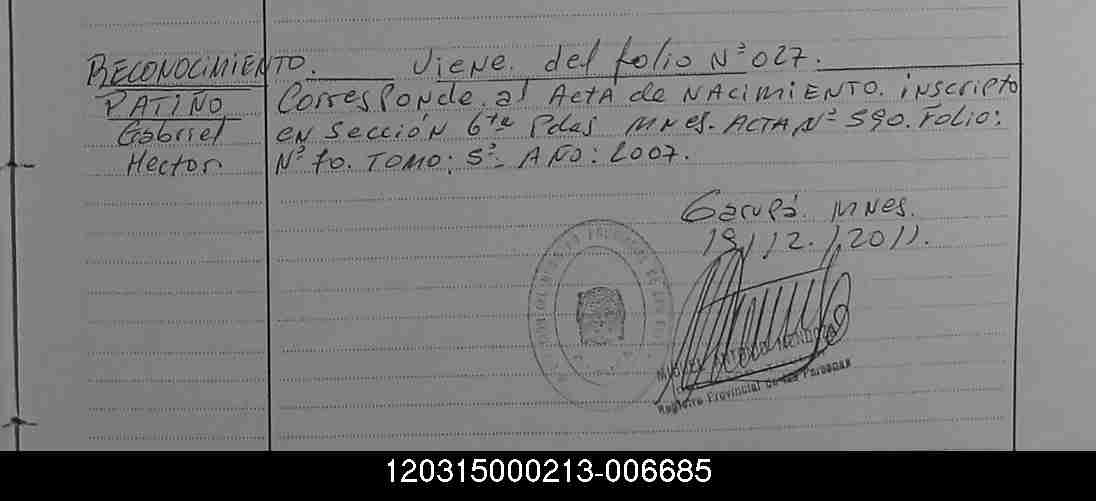 RECONOCIMIENTO. Viene del folio Nº 027.
PATIÑO Corresponde al Acta de NACIMIENTO. inscripto
Gabriel en sección 6ta Pdas MNES. ACTA Nº 590. Folio:
Hector. Nº 70. TOMO: 5º. AÑO: 2007.
Garupá. MNES.
19/12/2011.
MIGUEL ANTONIO MENDOZA
Registro Provincial de las Personas
120315000213-006685